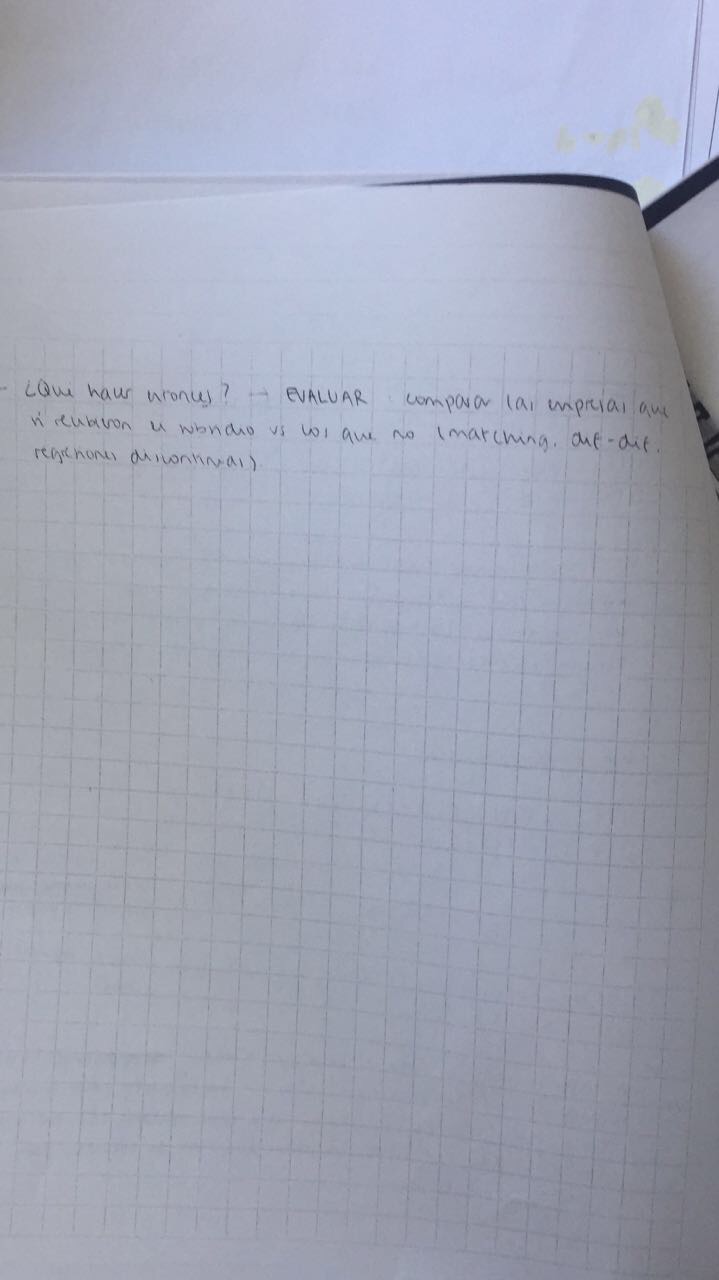 - ¿Que hacer entonces? → EVALUAR: comparar las empresas que
si recibieron el subsidio vs los que no (matching, dif-dif,
regresiones discontinuas)